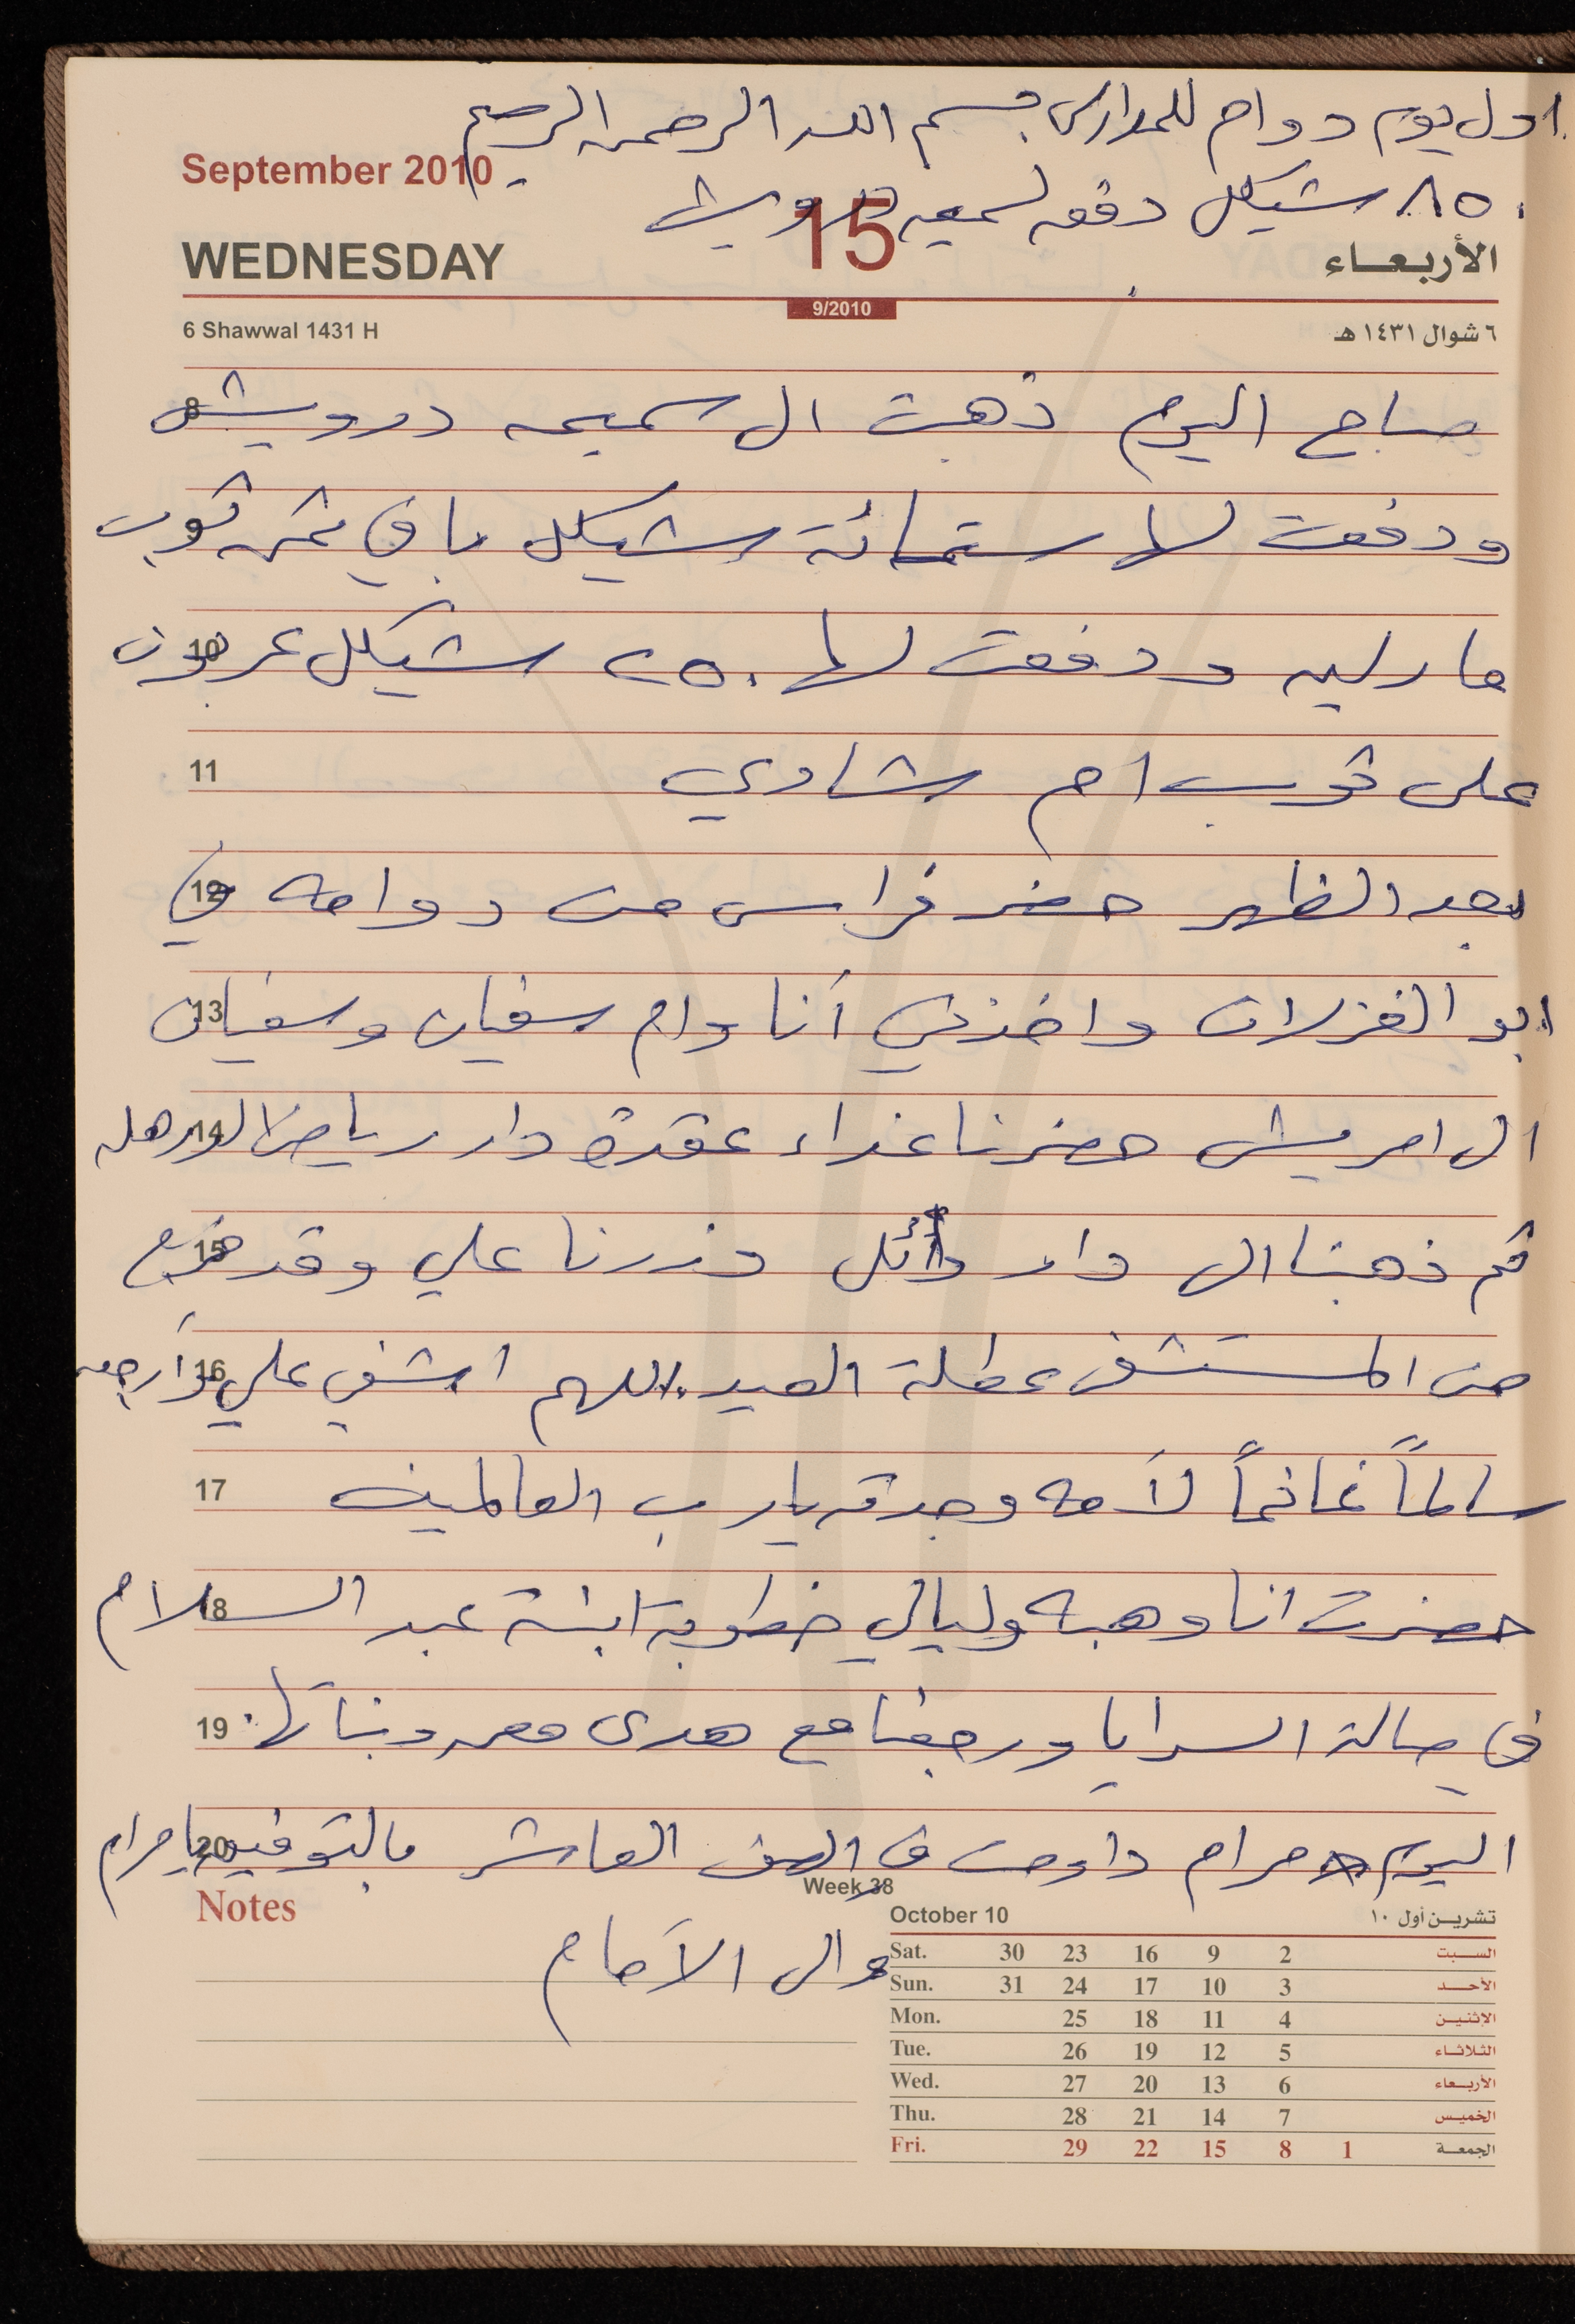 اول يوم دوام للمدارس بسم الله الرحمن الرحيم
September 2010
٨٥٠ شيكل دفعه لسميحه درويش
WEDNESDAY 15 الأربعاء
9/2010
6 Shawwal 1431 H ٦ شوال ١٤٣١ هـ
8 صباح اليوم ذهبت الى سميحه درويش
9 ودفعت لها ستمائة شيكل باقي ثمن ثوب
10 مارلين ودفعت لها ٢٥٠ شيكل عربون
11 على ثوب ام شادي
12 بعد الظهر حضر فراس من دوامه في
13 ابو الغزلان واخذني أنا وام سفيان وسفيان
14 الى امريش حضرنا غداء عقدة دار رياض
15 ثم ذهبنا الى دار وائل وزرنا علي وقد خرج
16 من المستشفى عطلة العيد، اللهم اشفي علي وأرجعه
17 سالماً غانماً لأمه وجدته يارب العالمين
18 حضرت انا وهبه وليالي خطوبة ابنة عبد السلام
19 في صالة السرايا ورجعنا مع هدى معمر وبناتها.
20 اليوم مرام داومت في الصف العاشر بالتوفيق يا مرام
والى الأمام
Notes
Week 38
October 10 تشرين أول ١٠
Sat. 30 23 16 9 2 السبت
Sun. 31 24 17 10 3 الأحد
Mon. 25 18 11 4 الإثنين
Tue. 26 19 12 5 الثلاثاء
Wed. 27 20 13 6 الأربعاء
Thu. 28 21 14 7 الخميس
Fri. 29 22 15 8 1 الجمعة